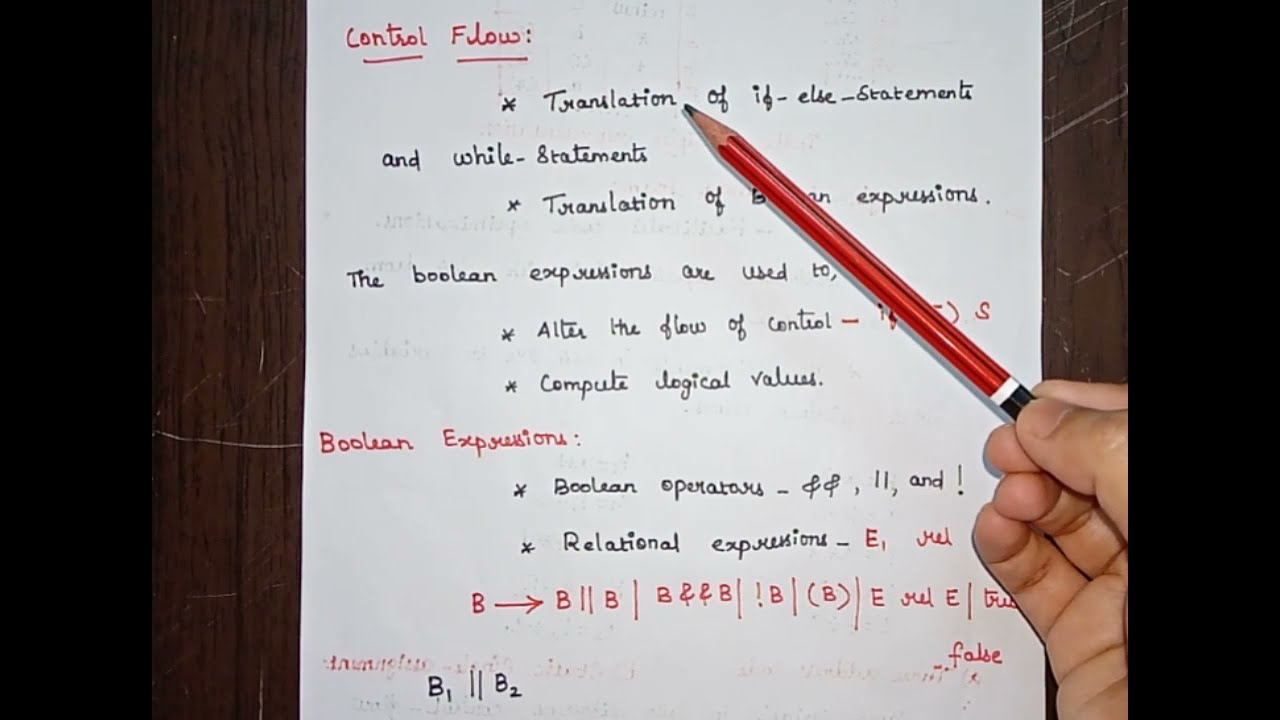 Control Flow:
* Translation of if-else-Statements
and while-Statements
* Translation of expressions.
The boolean expressions are used to,
* Alter the flow of control - if ) S
* Compute logical values.
Boolean Expressions:
* Boolean operators - &&, ||, and !
* Relational expressions - E1 rel
B → B || B | B && B | !B | (B) | E rel E |
false
B1 || B2